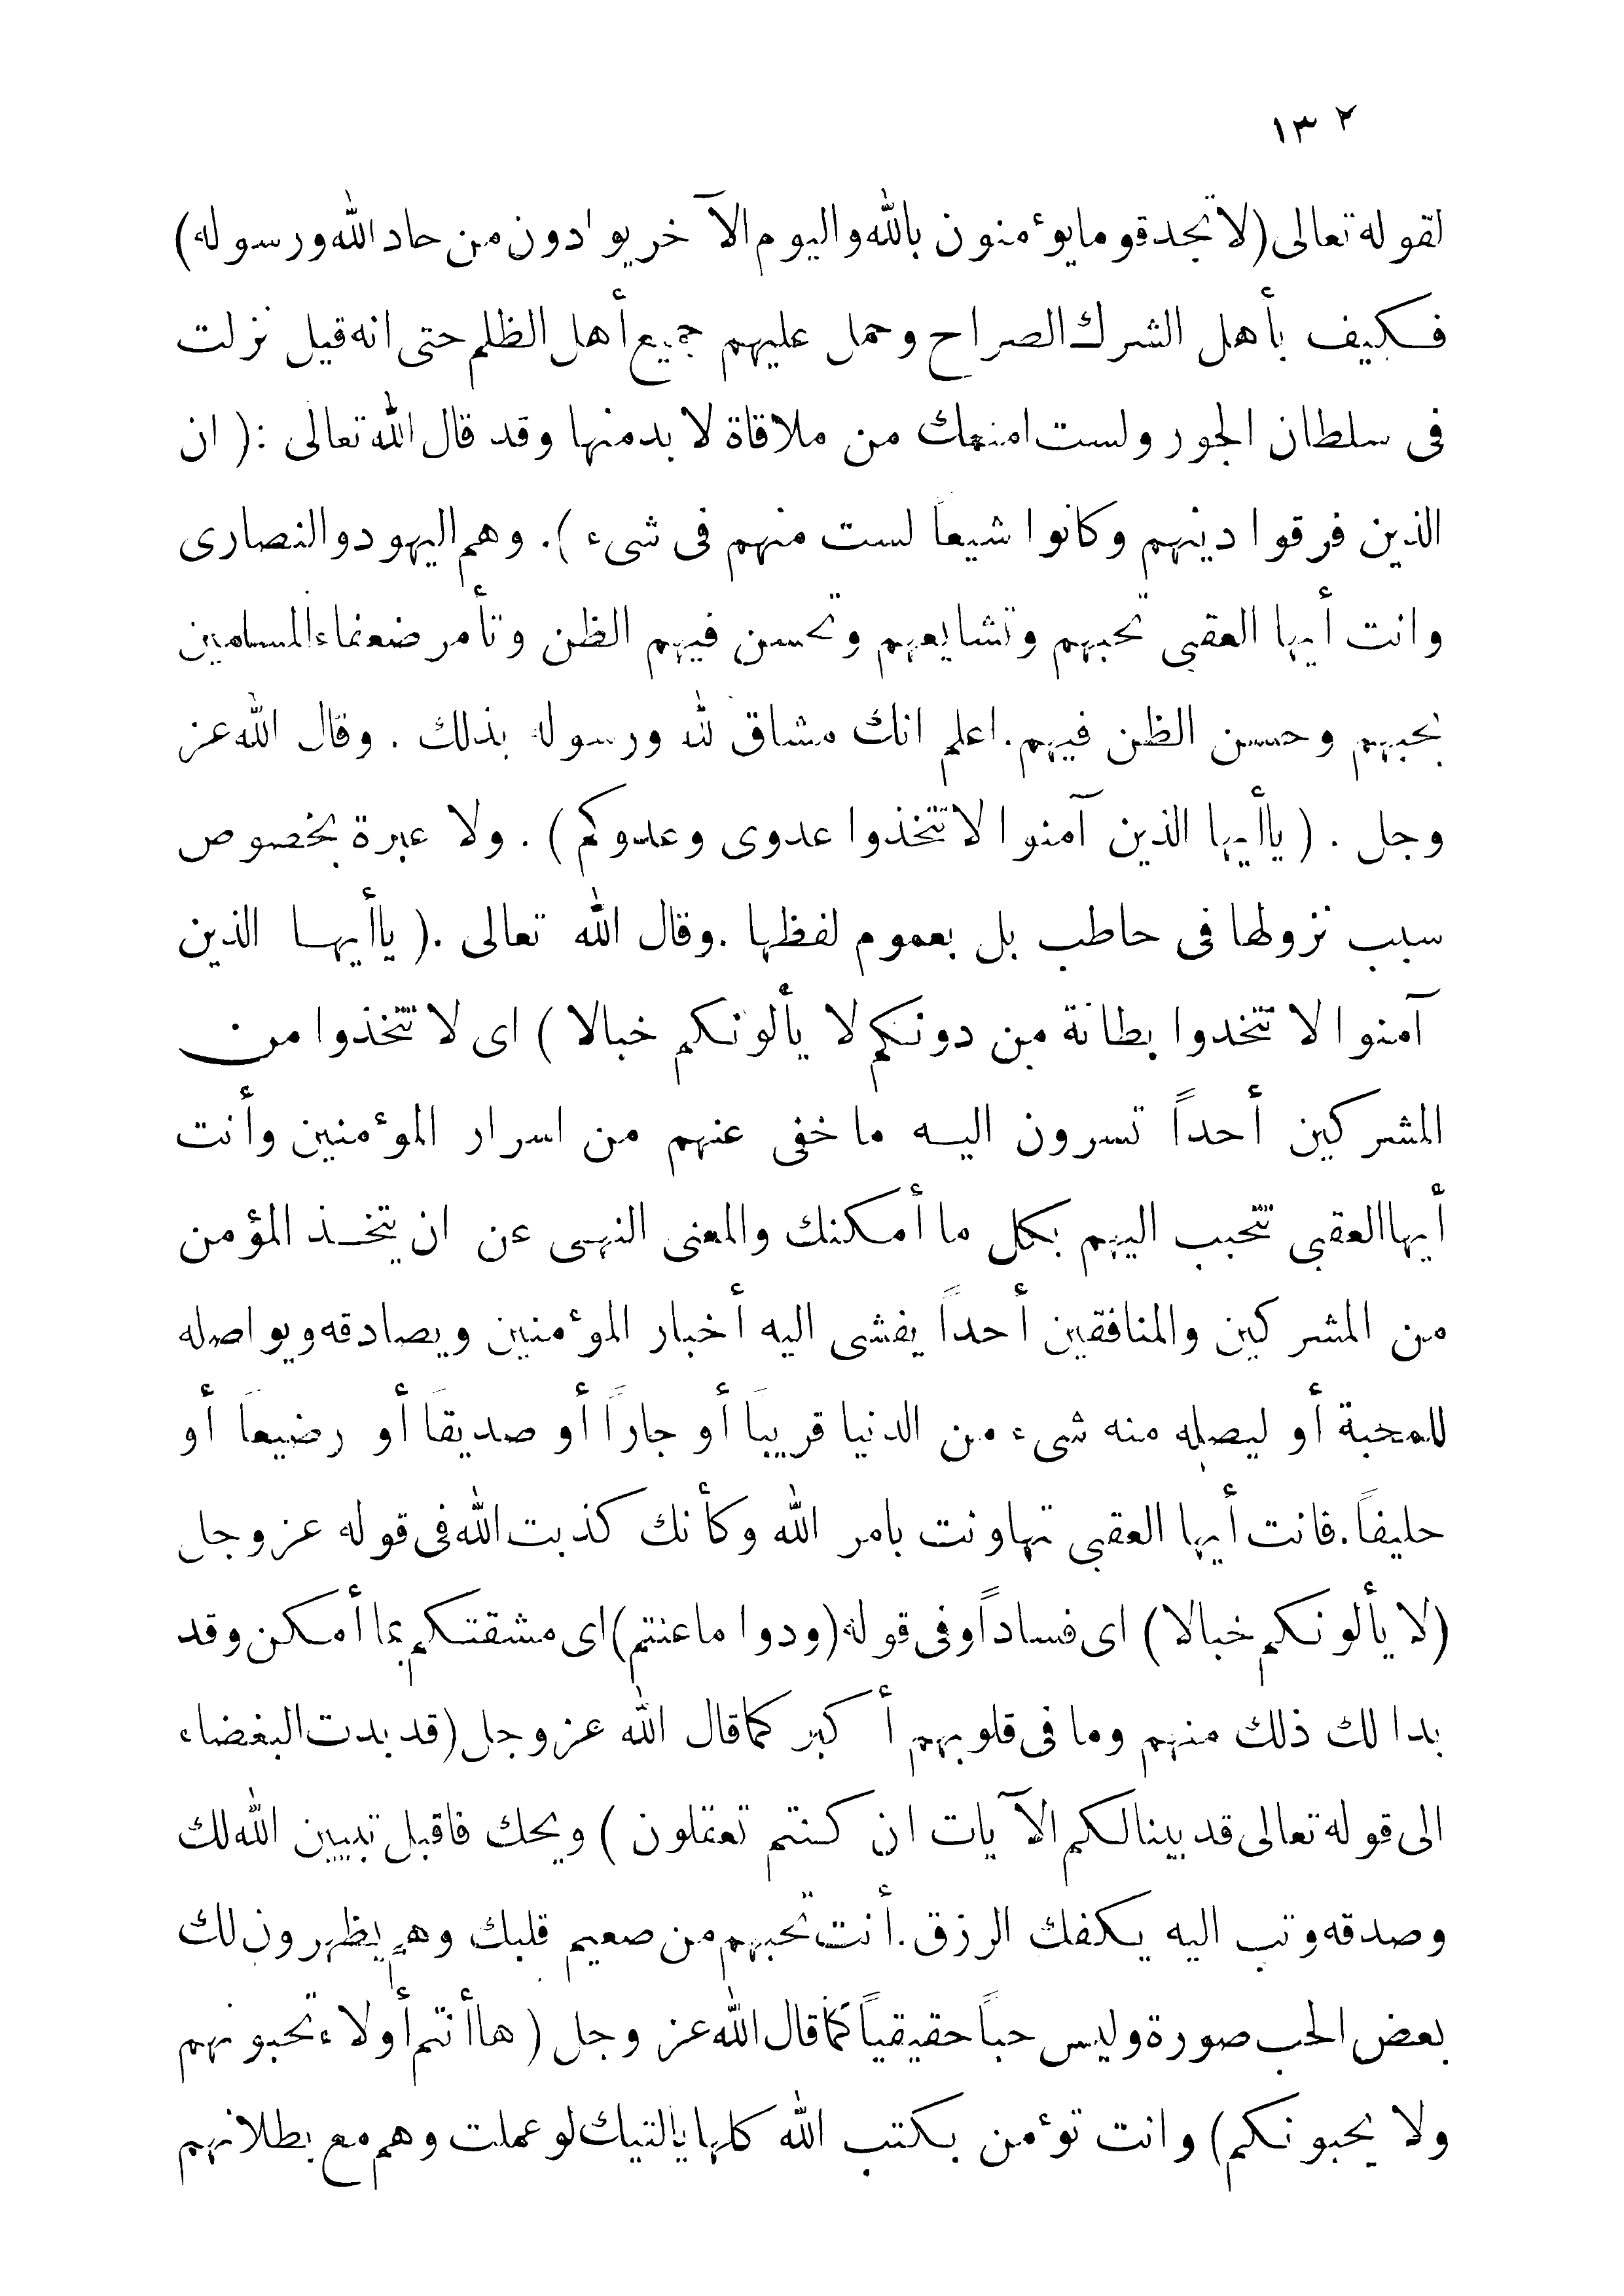 ١٣٢
لقوله تعالى (لا تجد قوما يؤمنون بالله واليوم الآخر يوادون من حاد الله ورسوله)
فكيف بأهل الشرك الصراح وحمل عليهم جميع أهل الظلم حتى انه قيل نزلت
فى سلطان الجور ولست امنعك من ملاقاة لا بد منها وقد قال الله تعالى :( ان
الذين فرقوا دينهم وكانوا شيعاً لست منهم فى شىء ). وهم اليهود والنصارى
وانت أيها العقبى تحبهم وتشايعهم وتحسن فيهم الظن وتأمر ضعفاء المسلمين
بحبهم وحسن الظن فيهم. اعلم انك مشاق لله ورسوله بذلك . وقال الله عز
وجل . ( ياأيها الذين آمنوا لا تتخذوا عدوى وعدوكم ) . ولا عبرة بخصوص
سبب نزولها فى حاطب بل بعموم لفظها .وقال الله تعالى .( ياأيها الذين
آمنوا لا تتخدوا بطانة من دونكم لا يألونكم خبالا ) اى لا تتخذوا من
المشركين أحداً تسرون اليه ما خفى عنهم من اسرار المؤمنين وأنت
أيها العقبى تتحبب اليهم بكل ما أمكنك والمعنى النهى عن ان يتخذ المؤمن
من المشركين والمنافقين أحداً يفشى اليه أخبار المؤمنين ويصادقه ويواصله
للمحبة أو ليصله منه شىء من الدنيا قريباً أو جاراً أو صديقاً أو رضيعاً أو
حليفاً. فانت أيها العقبى تهاونت بامر الله وكأنك كذبت الله فى قوله عز وجل
(لا يألونكم خبالا) اى فساداً وفى قوله (ودوا ما عنتم) اى مشقتكم بما أمكن وقد
بدا لك ذلك منهم وما فى قلوبهم أكبر كما قال الله عز وجل (قد بدت البغضاء
الى قوله تعالى قد بينا لكم الآيات ان كنتم تعقلون ) ويحك فاقبل تبيين الله لك
وصدقه وتب اليه يكفك الرزق. أنت تحبهم من صميم قلبك وهم يظهرون لك
بعض الحب صورة وليس حباً حقيقياً كما قال الله عز وجل ( ها أنتم أولاء تحبونهم
ولا يحبونكم) وانت تؤمن بكتب الله كلها ياليتك لو عملت وهم مع بطلانهم